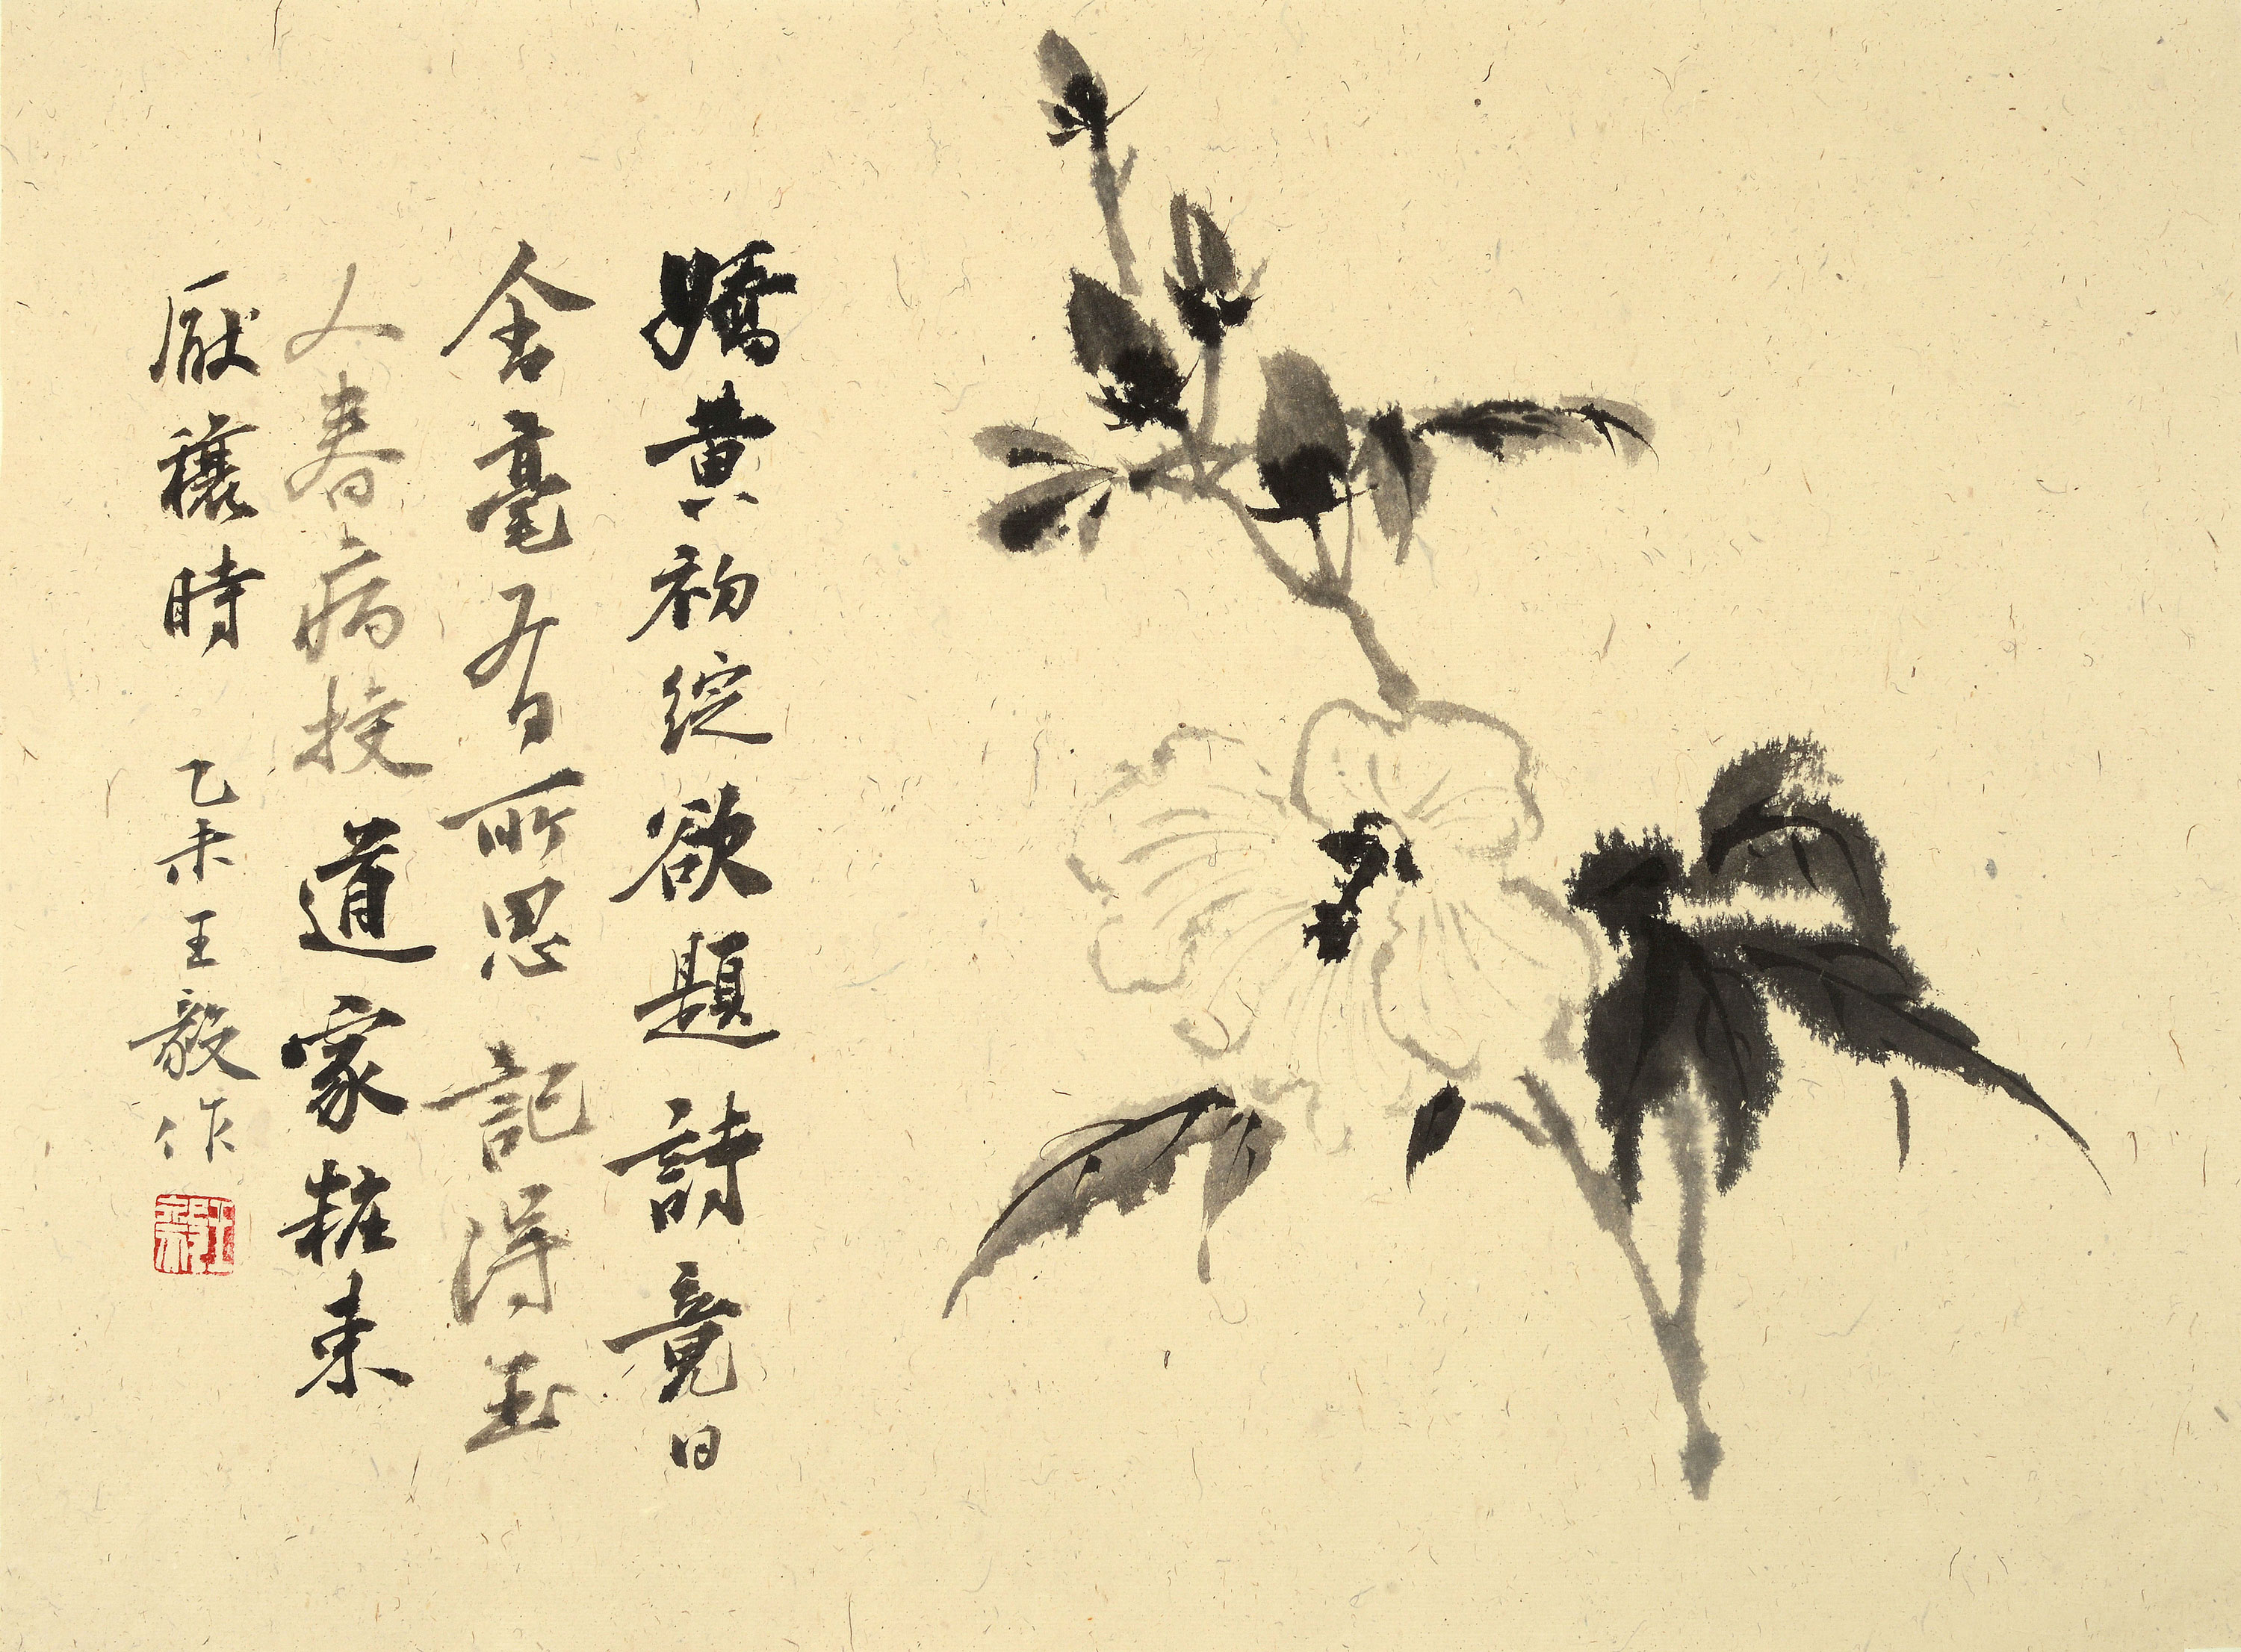 嬌黄初綻欲題詩竟日
含毫有所思記得玉
人春病挍道家粧束
厭穰時 乙未王毅作